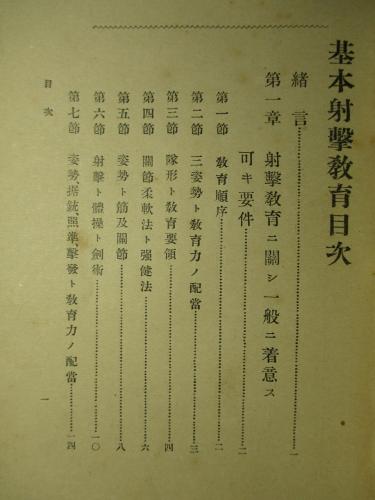 基本射擊敎育目次
緒言……………………………一
第一章 射擊敎育ニ關シ一般ニ着意ス
可キ要件……………………………二
第一節 敎育順序……………………………二
第二節 三姿勢ト敎育力ノ配當……………………………三
第三節 隊形ト敎育要領……………………………四
第四節 關節柔軟法ト强健法……………………………六
第五節 姿勢ト筋及關節……………………………八
第六節 射擊ト體操ト劍術……………………………一〇
第七節 姿勢、据銃、照準、擊發ト敎育力ノ配當……………一四
目次 一